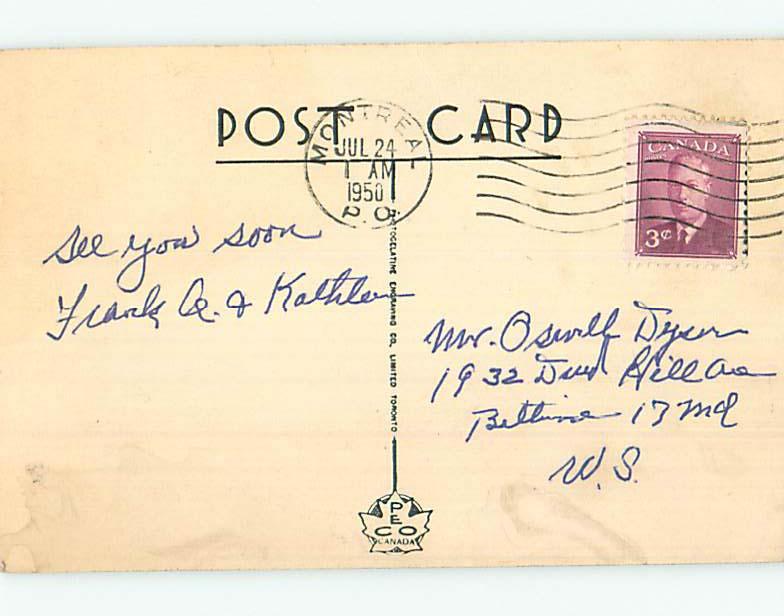 POST CARD
MONTREAL
JUL 24
1 AM
1950
P.Q.
CANADA
3¢
See you soon
Frank A. & Kathleen
Mr. Oswell
1932 Druid Hill Ave
Baltimore 17 Md
U.S.
PHOTOGELATINE ENGRAVING CO. LIMITED TORONTO
PECO
CANADA